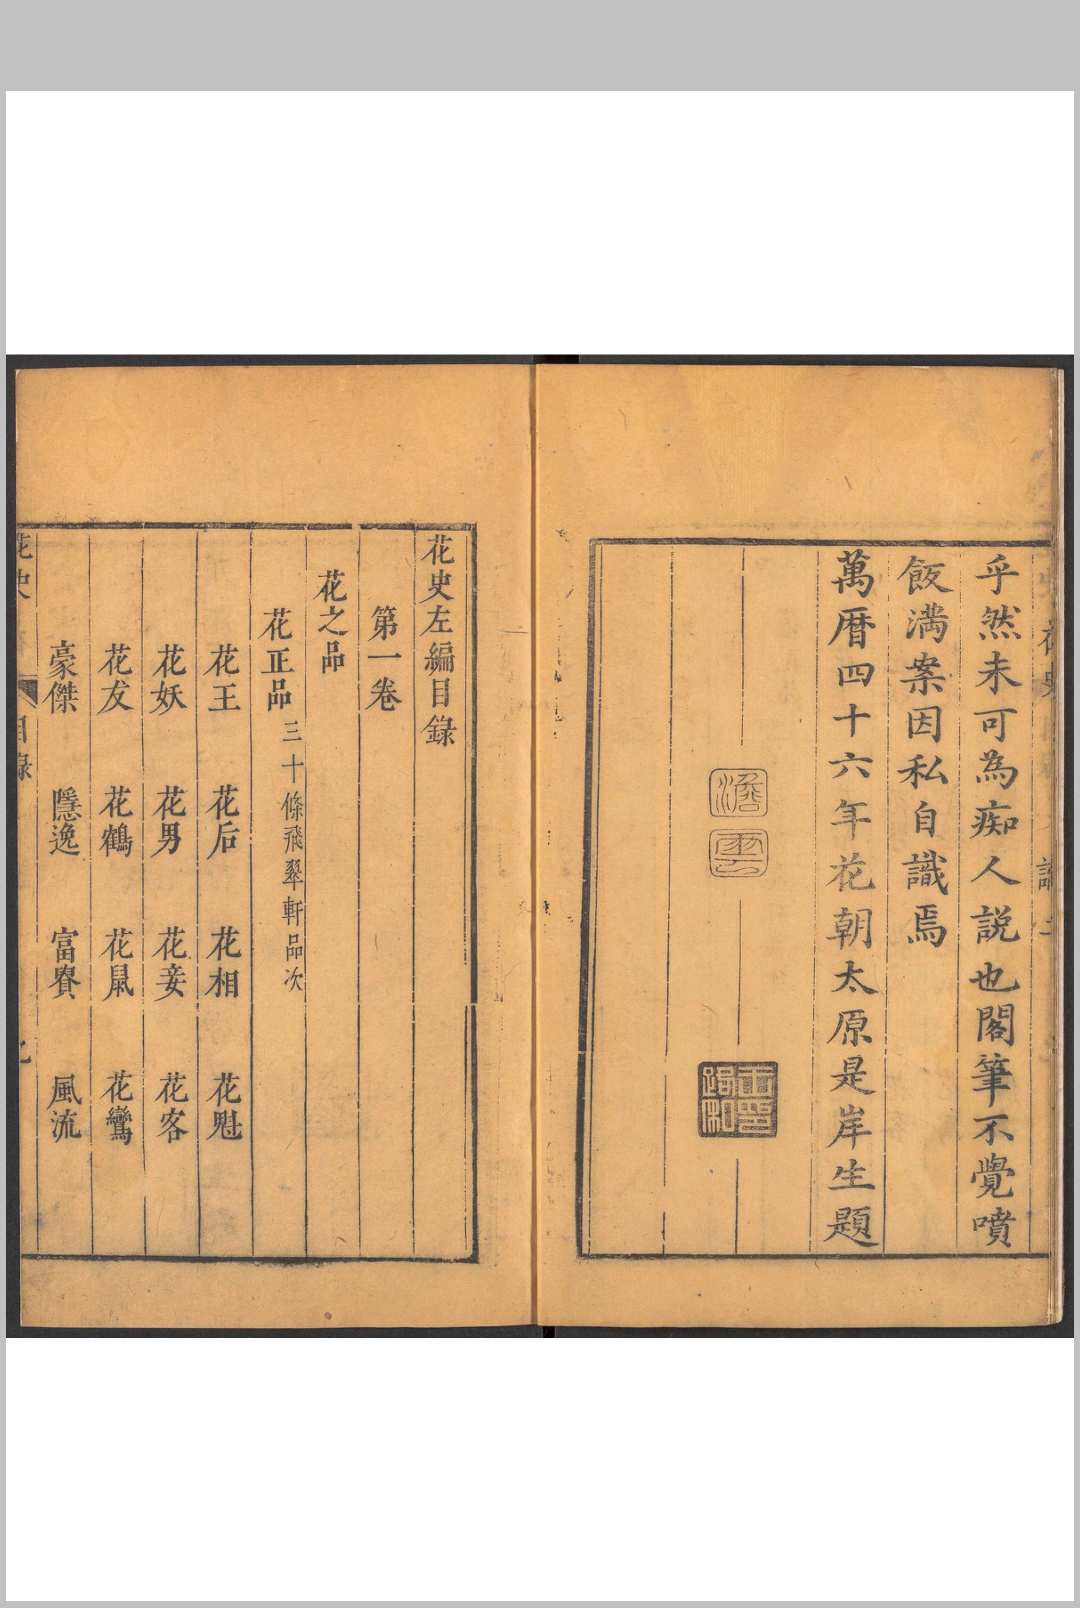 乎然未可為痴人說也閣筆不覺噴
飯满案因私自識焉
萬曆四十六年花朝太原是岸生題
澹雲
花史左編目錄
第一卷
花之品
花正品 三十條飛翠軒品次
花王 花后 花相 花魁
花妖 花男 花妾 花客
花友 花鶴 花鼠 花鸞
豪傑 隱逸 富貴 風流
花史 目錄